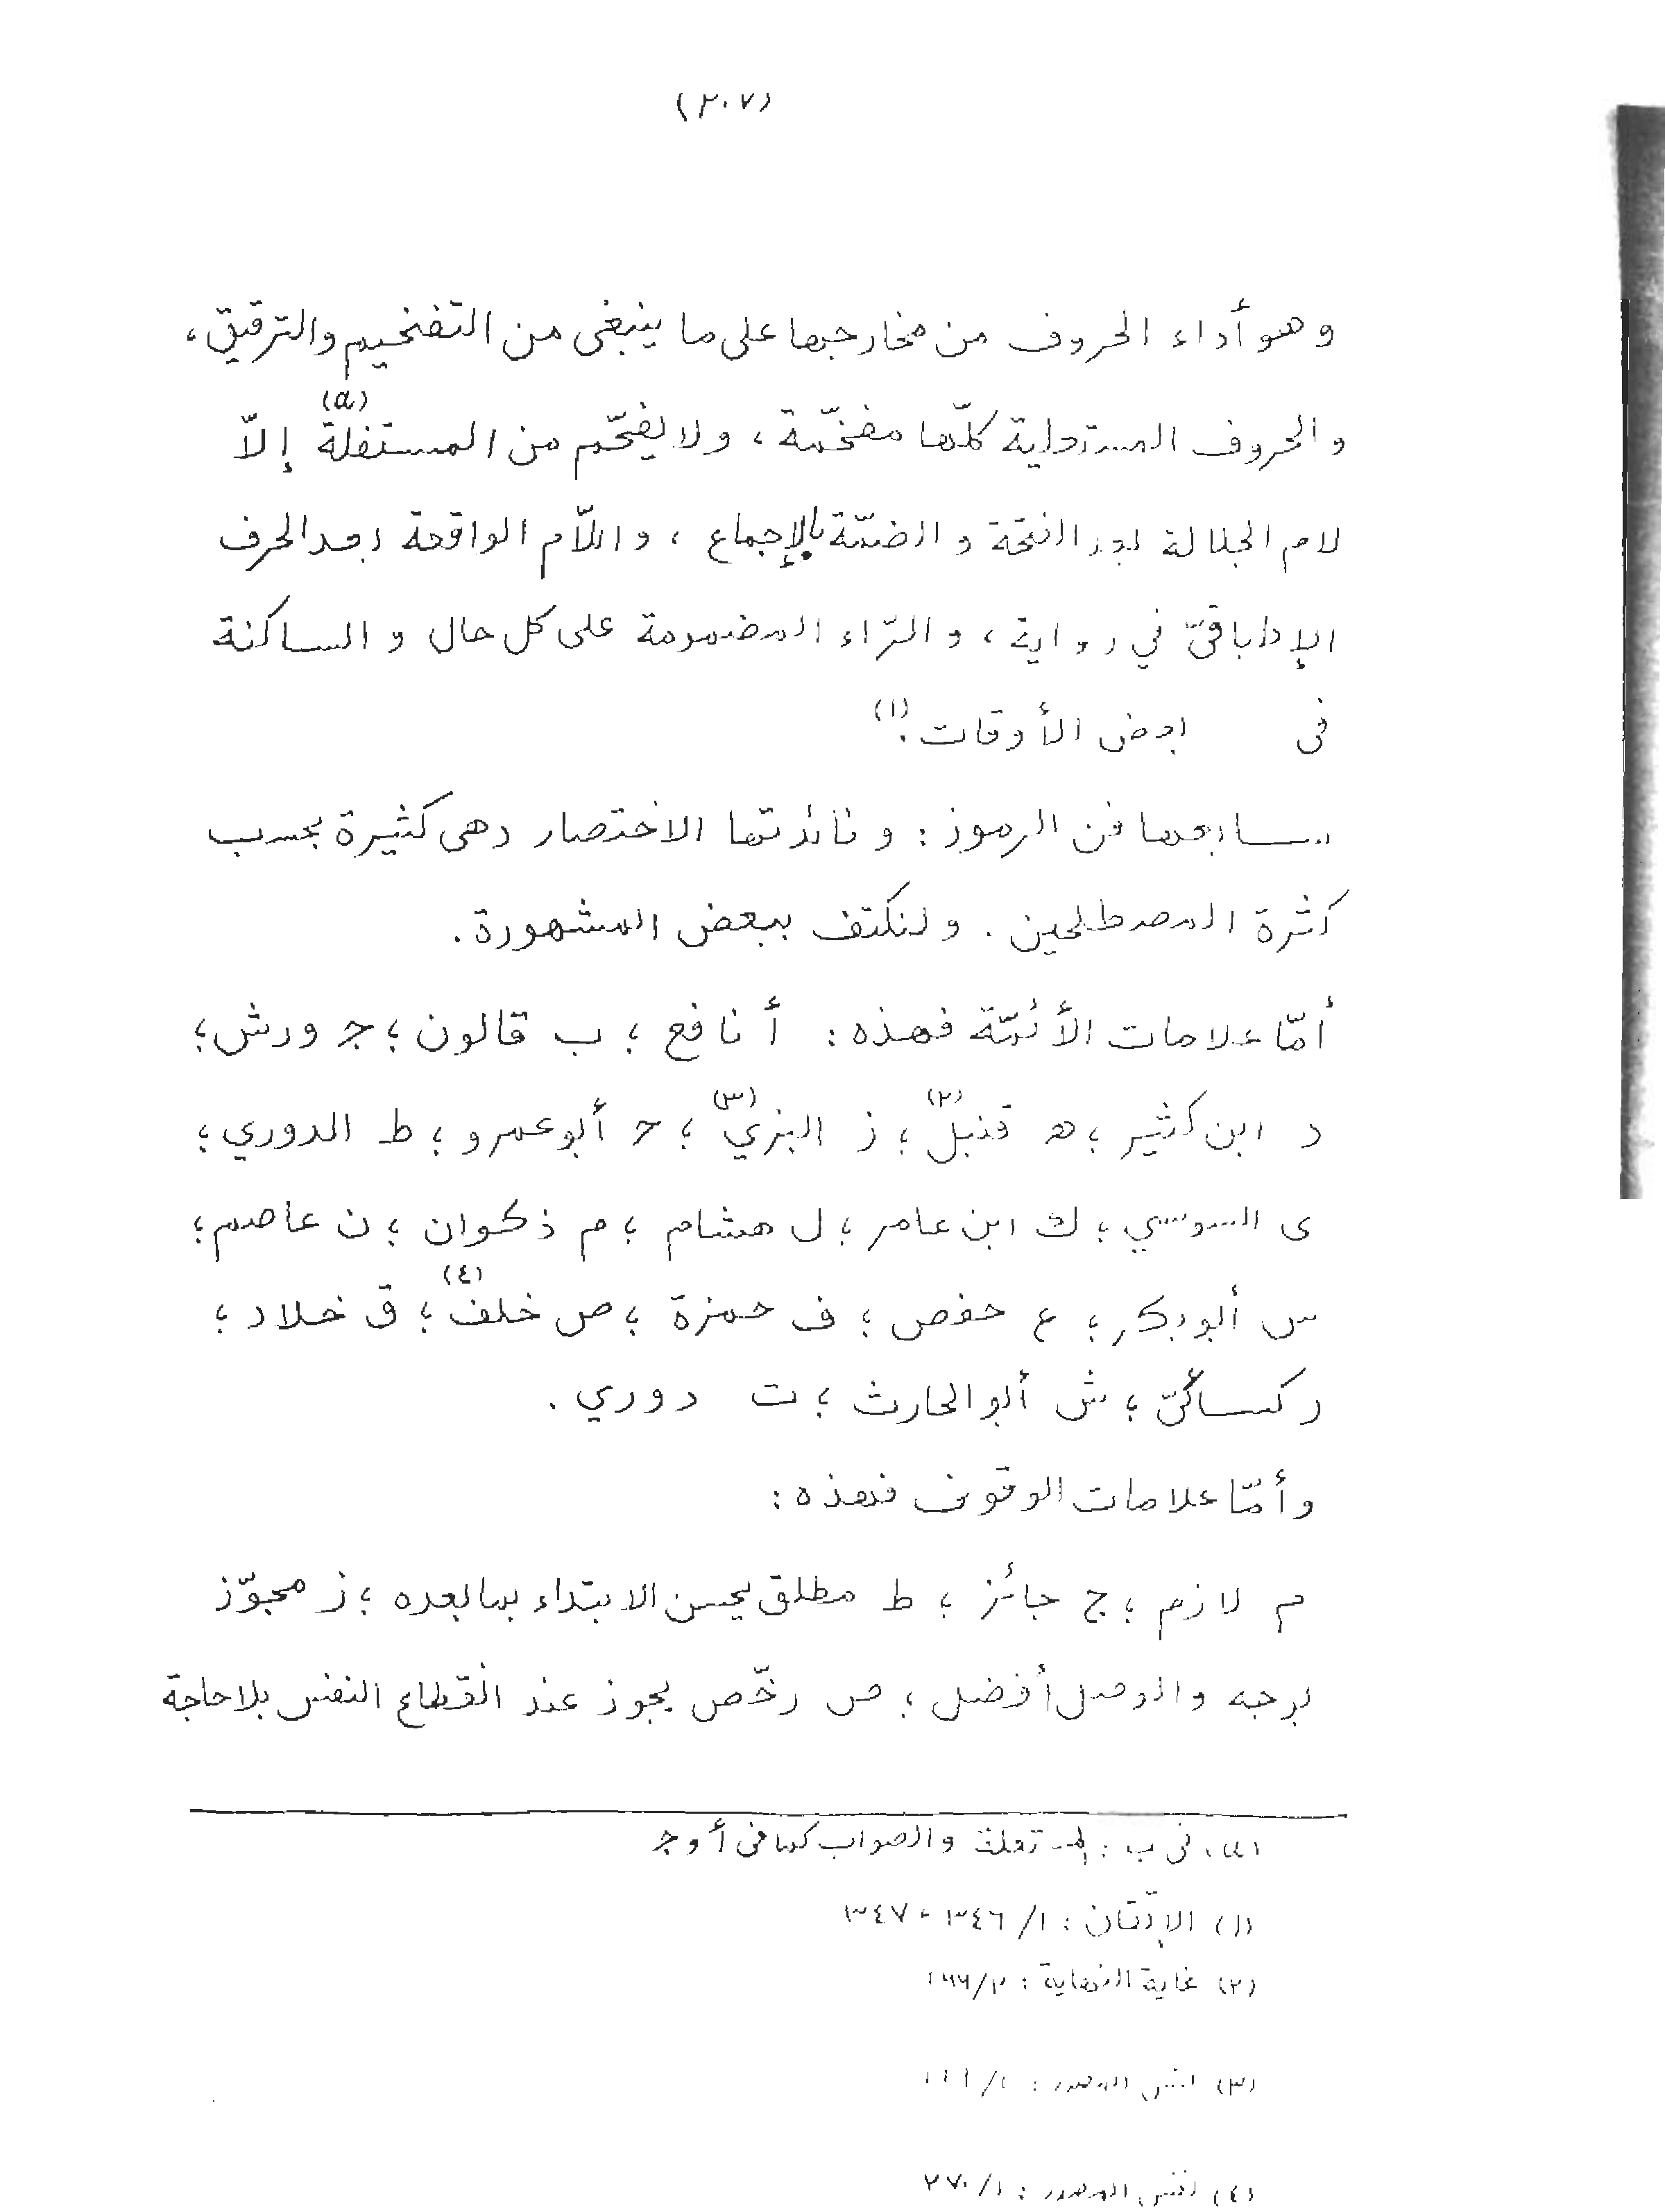 (٢٠٧)
وهو أداء الحروف من مخارجها على ما ينبغى من التفخيم والترقيق،
والحروف المستعلية كلّها مفخّمة، ولا يفخّم من المستفلة(a) إلاّ
لام الجلالة بعد الفتحة والضمّة بالإجماع، واللاّم الواقعة بعد الحرف
الإطباقىّ في رواية، والرّاء المضمومة على كل حال والساكنة
فى بعض الأوقات.(١)
سابعها فن الرموز: وفائدتها الاختصار وهى كثيرة بحسب
كثرة المصطلحين. ولنكتف ببعض المشهورة.
أمّا علامات الأئمّة فهذه: أ نافع؛ ب قالون؛ ج ورش؛
د ابن كثير؛ ه قنبل(٢)؛ ز البزيّ(٣)؛ ح أبو عمرو؛ ط الدوري؛
ى السوسي؛ ك ابن عامر؛ ل هشام؛ م ذكوان؛ ن عاصم؛
س أبو بكر؛ ع حفص؛ ف حمزة؛ ص خلف(٤)؛ ق خلاد؛
ر كسائىّ؛ ش أبو الحارث؛ ت دوري.
وأمّا علامات الوقوف فهذه:
م لازم؛ ج جائز؛ ط مطلق يحسن الابتداء بما بعده؛ ز مجوّز
لوجه والوصل أفضل؛ ص رخّص يجوز عند انقطاع النفس بلا حاجة
(a) فى ب: المستعلة والصواب كما فى أ و ج
(١) الإتقان: ١/ ٣٤٦ - ٣٤٧
(٢) غاية النهاية: ٢/
(٣) نفس المصدر: ١/
(٤) نفس المصدر: ١/ ٢٧٠